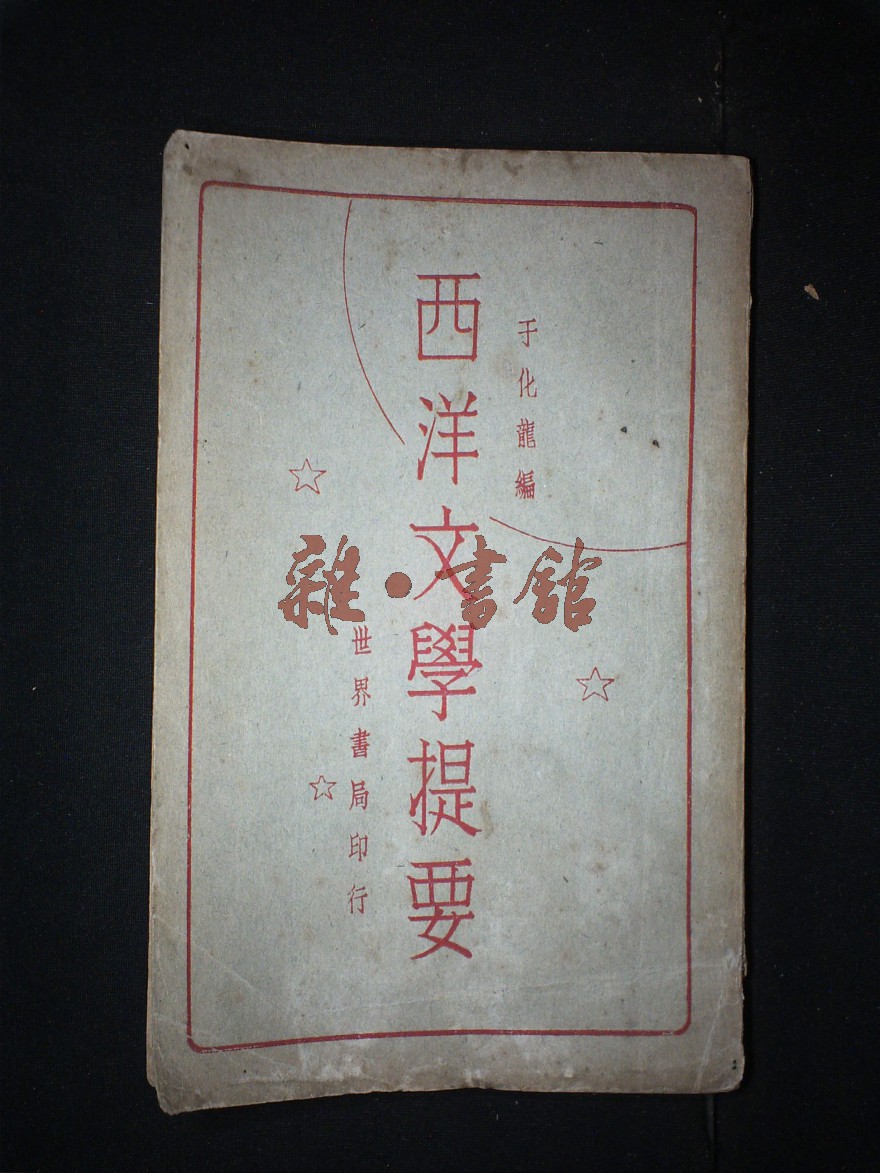 于化龍編
西洋文學提要
世界書局印行
雜·書館